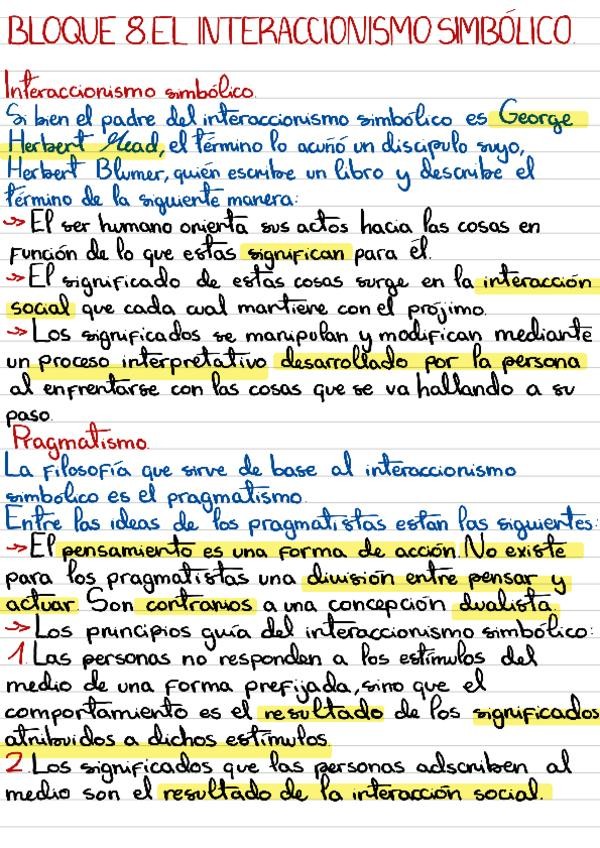 BLOQUE 8.EL INTERACCIONISMO SIMBÓLICO.
Interaccionismo simbólico.
Si bien el padre del interaccionismo simbólico es George
Herbert Mead, el término lo acuñó un discípulo suyo,
Herbert Blumer, quién escribe un libro y describe el
término de la siguiente manera:
->> El ser humano orienta sus actos hacia las cosas en
función de lo que estas significan para él.
->> El significado de estas cosas surge en la interacción
social que cada cual mantiene con el prójimo.
->> Los significados se manipulan y modifican mediante
un proceso interpretativo desarrollado por la persona
al enfrentarse con las cosas que se va hallando a su
paso.
Pragmatismo.
La filosofía que sirve de base al interaccionismo
simbólico es el pragmatismo.
Entre las ideas de los pragmatistas están las siguientes:
->> El pensamiento es una forma de acción. No existe
para los pragmatistas una división entre pensar y
actuar. Son contrarios a una concepción dualista.
->> Los principios guía del interaccionismo simbólico:
1. Las personas no responden a los estímulos del
medio de una forma prefijada, sino que el
comportamiento es el resultado de los significados
atribuidos a dichos estímulos.
2. Los significados que las personas adscriben al
medio son el resultado de la interacción social.